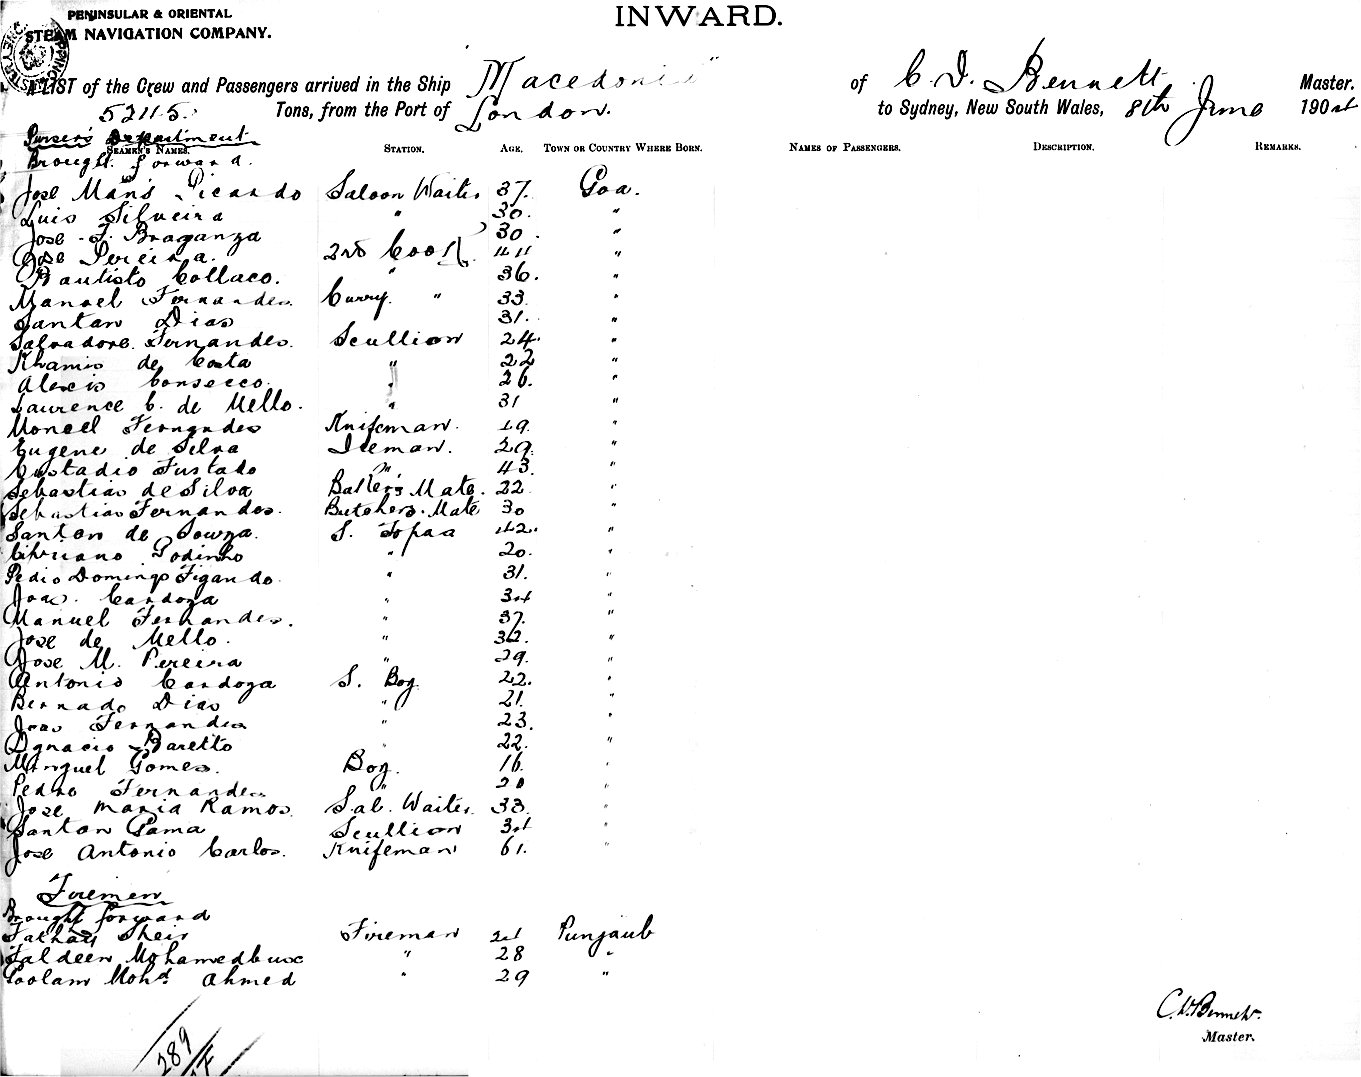 PENINSULAR & ORIENTAL
STEAM NAVIGATION COMPANY.
INWARD.
A LIST of the Crew and Passengers arrived in the Ship "Macedonia" of C. D. Bennett Master.
5211.5 Tons, from the Port of London. to Sydney, New South Wales, 8th June 1904
Purser's Department
SEAMEN'S NAMES. STATION. AGE. TOWN OR COUNTRY WHERE BORN. NAMES OF PASSENGERS. DESCRIPTION. REMARKS.
Brought forward.
Jose Picardo Saloon Waiter 37. Goa.
Luis Silveira " 30. "
Jose F. Braganza 30. "
Jose Pereira. 2nd Cook 44 "
Bautisto Collaco. " 36. "
Manoel Fernandes. Curry. " 33. "
Santan Dias 31. "
Salvadore Fernandes. Scullion 24. "
Khamis de Costa " 22 "
Alexis Consecco. " 26. "
Laurence C. de Mello. " 31 "
Monoel Fernandes Knifeman. 19. "
Eugene de Silva Ileman. 29. "
Custadio Furtado " 43. "
Sebastian de Silva Baker's Mate. 22 "
Sebastian Fernandes. Butchers. Mate 30 "
Santan de Souza. S. Topaa 42. "
Cipriano Godinho " 20. "
Pedio Domingo Figando. " 31. "
Joas. Cardoza " 34 "
Manuel Fernandes. " 37. "
Jose de Mello. " 32. "
Jose M. Pereira " 29. "
Antonio Cardoza S. Boy. 22. "
Bernado Dias " 21. "
Joas Fernandes " 23. "
Ignacio Baretto " 22. "
Minguel Gomes. Boy. 16. "
Pedro Fernandes " 20 "
Jose Maria Ramos. Sal. Waiter. 33. "
Santan Gama Scullion 34 "
Jose Antonio Carlos. Knifeman 61. "
Firemen
Brought forward
Sheir Fireman 24 Punjaub
Faldeen Mohamedbux " 28 "
Goolam Mohd. Ahmed " 29 "
C. D. Bennett.
Master.
289